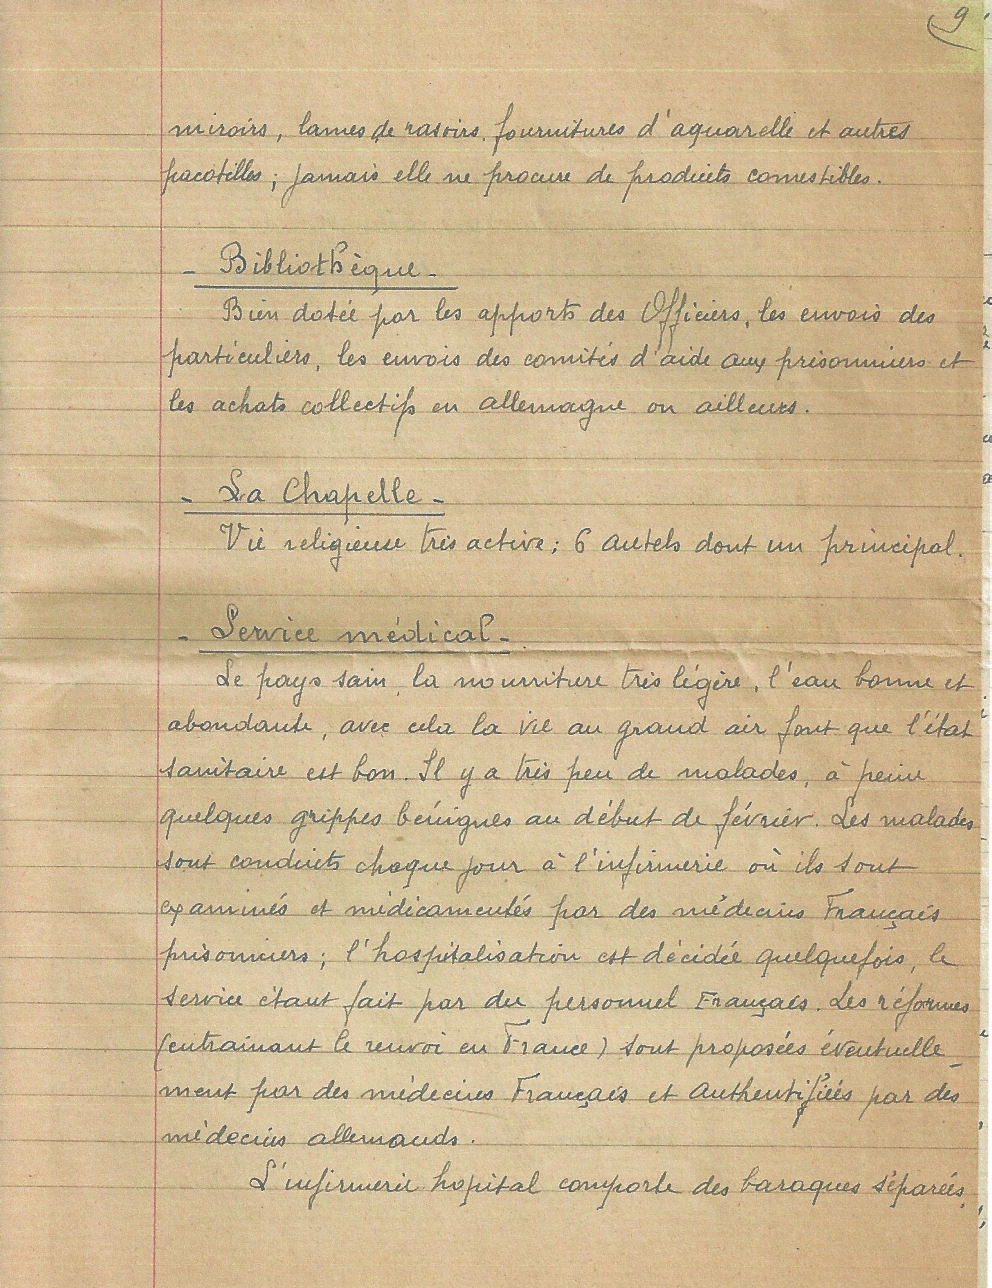 9
miroirs, lames de rasoirs, fournitures d'aquarelle et autres
pacotilles ; jamais elle ne procure de produits comestibles.
- Bibliothèque -
Bien dotée par les apports des Officiers, les envois des
particuliers, les envois des comités d'aide aux prisonniers et
les achats collectifs en allemagne ou ailleurs.
- La Chapelle -
Vie religieuse très active ; 6 autels dont un principal.
- Service médical -
Le pays sain, la nourriture très légère, l'eau bonne et
abondante, avec cela la vie au grand air font que l'état
sanitaire est bon. Il y a très peu de malades, à peine
quelques grippes bénignes au début de février. Les malades
sont conduits chaque jour à l'infirmerie où ils sont
examinés et médicamentés par des médecins Français
prisonniers ; l'hospitalisation est décidée quelquefois, le
service étant fait par du personnel Français. Les réformes
(entrainant le renvoi en France) sont proposées éventuelle_
ment par des médecins Français et authentifiées par des
médecins allemands.
L'infirmerie hopital comporte des baraques séparées,